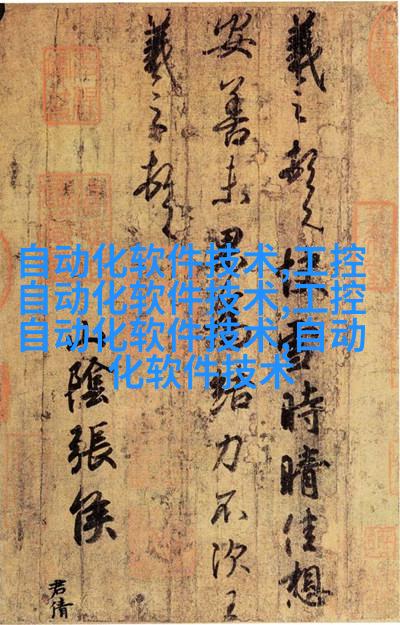 自动化软件技术,工控
自动化软件技术,工控
自动化软件技术,自动
化软件技术
羲之頓首快雪時晴佳想
安善未果為結力不次王
羲之頓首
山陰張侯
君倩